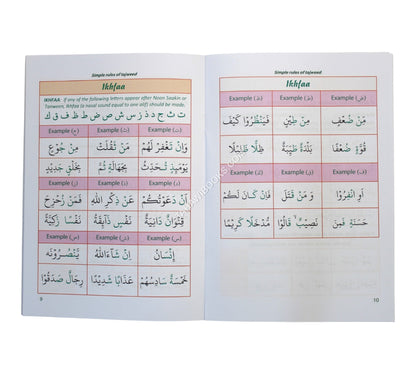 Simple rules of tajweed
Ikhfaa
IKHFAA: If any of the following letters appear after Noon Saakin or
Tanween, Ikhfaa (a nasal sound equal to one alif) should be made.
ت ث ج د ذ ز س ش ص ض ط ظ ف ق ك
Example (ت) Example (ث) Example (ج)
وَاَنْ تَغْفِرْ لَهُمْ مَنْ ثَقُلَتْ مِنْ جُوْعٍ
يَوْمَئِذٍ تُحَدِّثُ بِجَهَالَةٍ ثُمَّ بِخَلْقٍ جَدِيْدٍ
Example (د) Example (ذ) Example (ز)
اَنْ دَعَوْتُكُمْ عَنْ ذِكْرِ اللهِ فَمَنْ زُحْزِحَ
قِنْوَانٌ دَانِيَةٌ نَفْسٍ ذَآئِقَةُ نَفْسًا زَكِيَّةً
Example (س) Example (ش) Example (ص)
اِنْسَانُ اِنْ شَآءَ اللهُ يَنْصُرُوْنَهٗ
خَمْسَةٌ سَادِسُهُمْ عَذَابًا شَدِيْدًا رِجَالٌ صَدَقُوْا
9
Simple rules of tajweed
Ikhfaa
Example (ض) Example (ط) Example (ظ)
مِنْ ضُعْفٍ مِنْ طِيْنٍ فَيَنْظُرُوْا كَيْفَ
قُوَّةٍ ضُعْفًا بَلْدَةٌ طَيِّبَةٌ ظِلًّا ظَلِيْلًا
Example (ف) Example (ق) Example (ك)
اَوِ انْفِرُوْا وَ مَنْ قَتَلَ فَاِنْ كَانَ لَكُمْ
حَسَنَةٍ فَمِنَ نَصِيْبٌ قَالُوْا مُدْخَلًا كَرِيْمًا
10